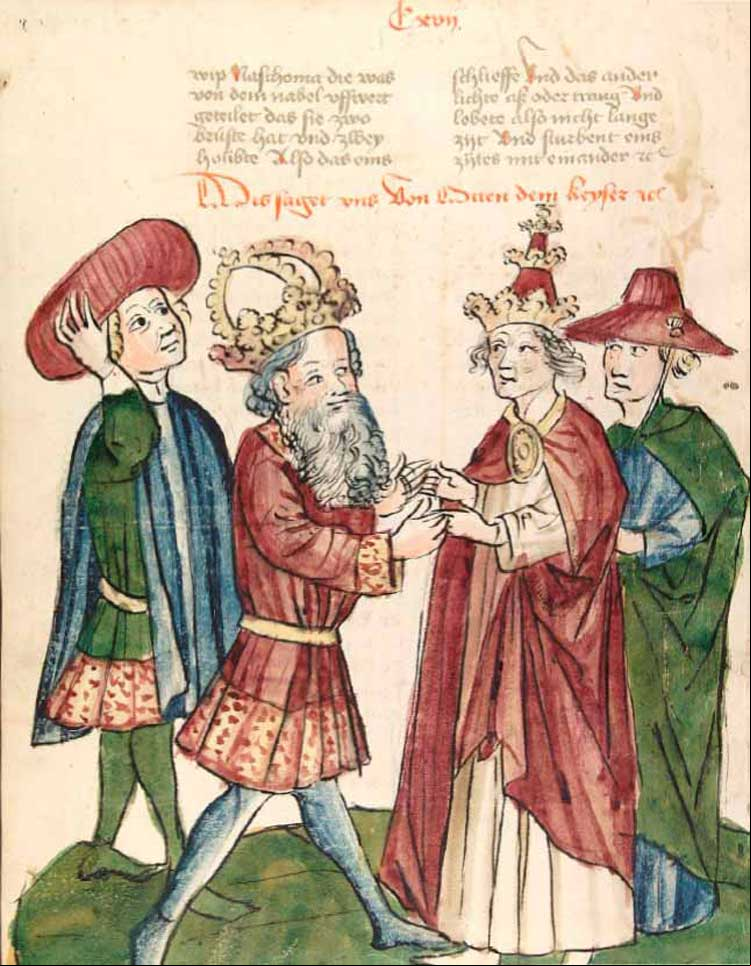 Cxvij
wip Naschoma die was
von dem nabel vffwert
geteilet das sie zwo
brúste hat vnd zwey
hoúbte Also das eins
schlieffe Vnd das ander
lichte aß oder trang Vnd
lebete also nicht lange
zijt Vnd sturbent eins
zijtes mit einander ꝛc
Dis saget vns Von Otten dem keyser ꝛc